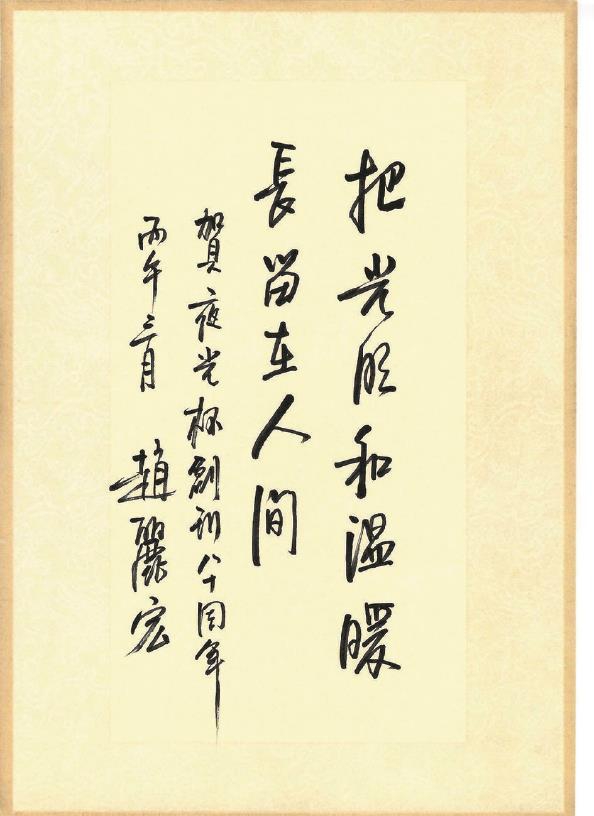 把光明和温暖
長留在人间
賀夜光杯創刊八十周年
丙午三月 趙麗宏